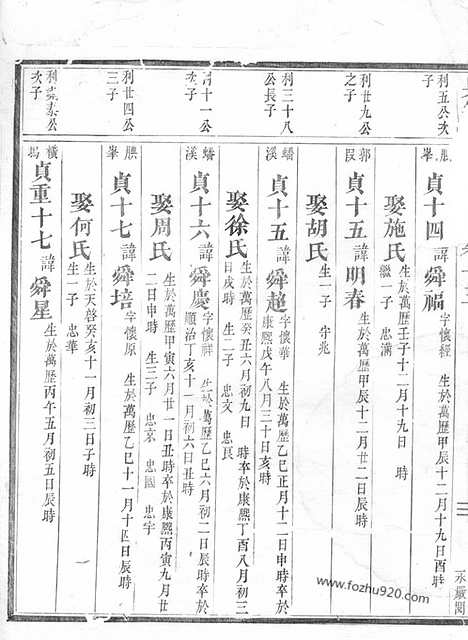 利五公次
子
脁峯 貞十四 諱舜福 字懷經 生於萬歷甲辰十二月十九日酉時
娶施氏 生於萬歷壬子十二月十九日 時
繼一子 忠滿
利廿九公
之子
郭叚 貞十五 諱明春 生於萬歷甲辰十二月廿二日辰時
娶胡氏 生一子 兆
利三十八
公長子
蟠溪 貞十五 諱舜超 字懷華 生於萬歷乙巳正月十二日申時卒於
康熙戊午八月三十日亥時
娶徐氏 生於萬歷癸丑六月初九日 時卒於康熙丁酉八月初三
日戌時 生二子 忠文 忠良
十一公
次子
蟠溪 貞十六 諱舜慶 字懷祥 生於萬歷乙巳六月初二日辰時卒於
順治丁亥十一月初六日丑時
娶周氏 生於萬歷甲寅六月廿一日丑時卒於康熙丙寅九月廿
二日申時 生三子 忠京 忠國 忠宇
利廿四公
三子
脁峯 貞十七 諱舜培 字懷原 生於萬歷乙巳十一月十四日辰時
娶何氏 生於天啓癸亥十一月初三日子時
生一子 忠華
利 素公
次子
橫塢 貞重十七 諱舜星 生於萬歷丙午五月初五日辰時
永嚴閣
www.fozhu920.com